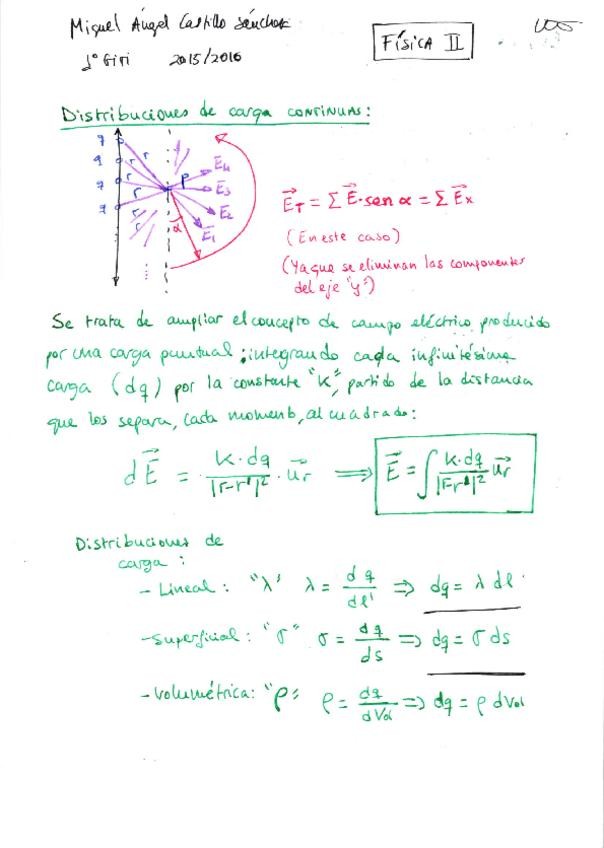 Miguel Ángel Castillo Sánchez
FÍSICA II
1º GITI 2015/2016
Distribuciones de carga CONTINUAS:
q
q
q
q
r r r r
P
E4
E3
E2
E1
α
E⃗T = Σ E⃗·sen α = Σ E⃗x
(En este caso)
(Ya que se eliminan las componentes
del eje "y")
Se trata de ampliar el concepto de campo eléctrico producido
por una carga puntual; integrando cada infinitésima
carga (dq) por la constante "K", partido de la distancia
que los separa, cada momento, al cuadrado:
dE⃗ = K·dq / |r-r'|² · u⃗r ⟹ E⃗ = ∫ K·dq / |r-r'|² u⃗r
Distribuciones de
carga:
- Lineal: "λ" λ = dq / dl' ⇒ dq = λ dl
- Superficial: "σ" σ = dq / ds ⇒ dq = σ ds
- Volumétrica: "ρ" ρ = dq / dVol ⇒ dq = ρ dVol